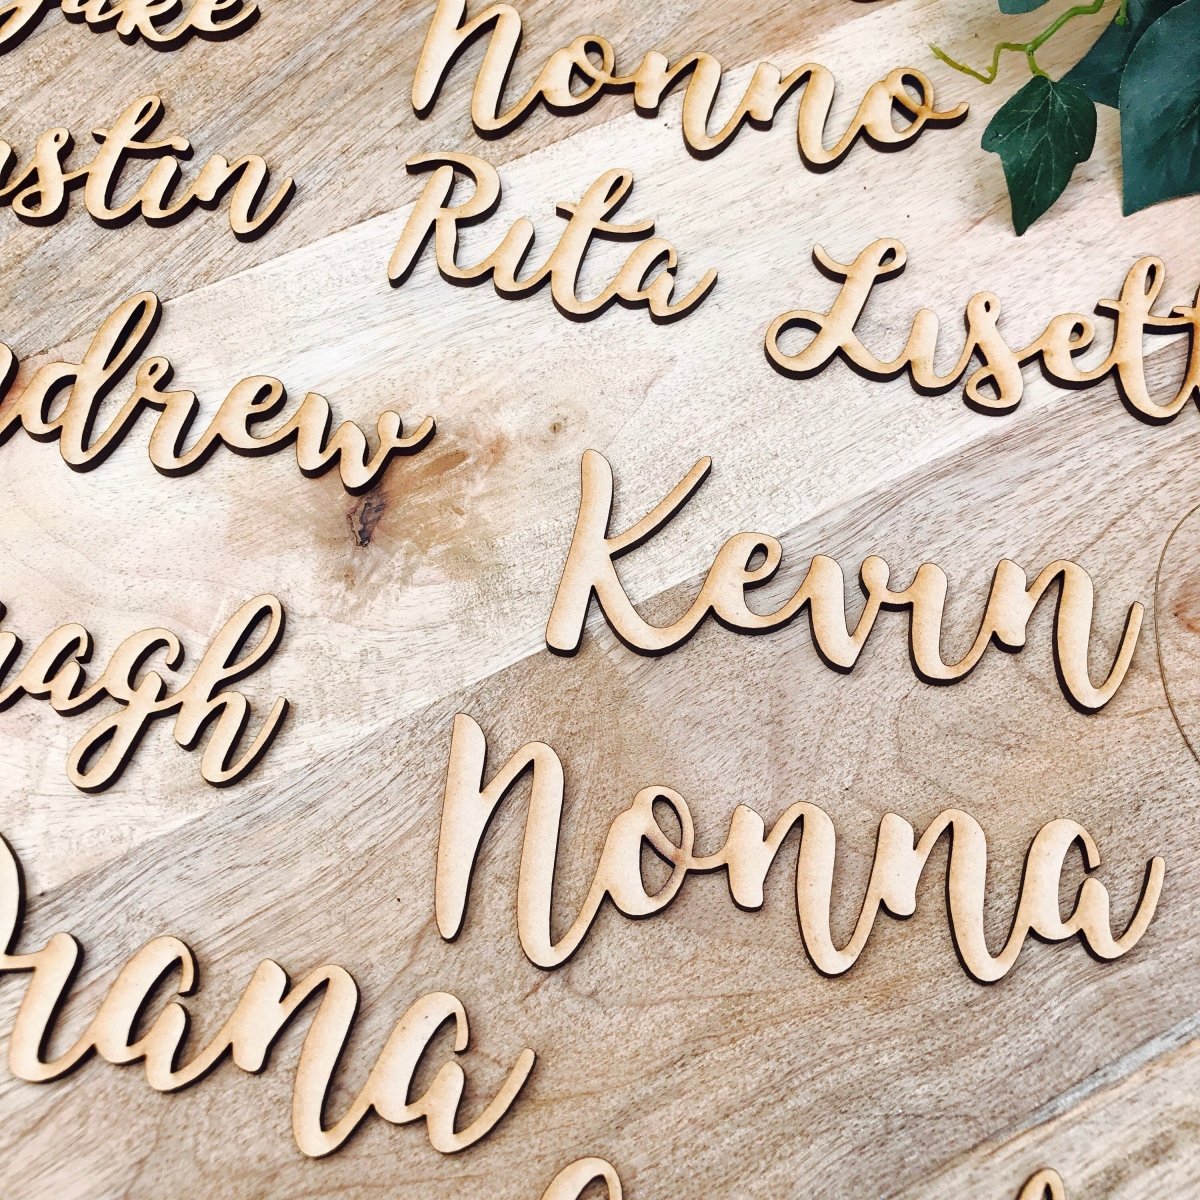 Jake
Nonno
stin
Rita
Lisett
ndrew
Kevin
agh
Nonna
iana